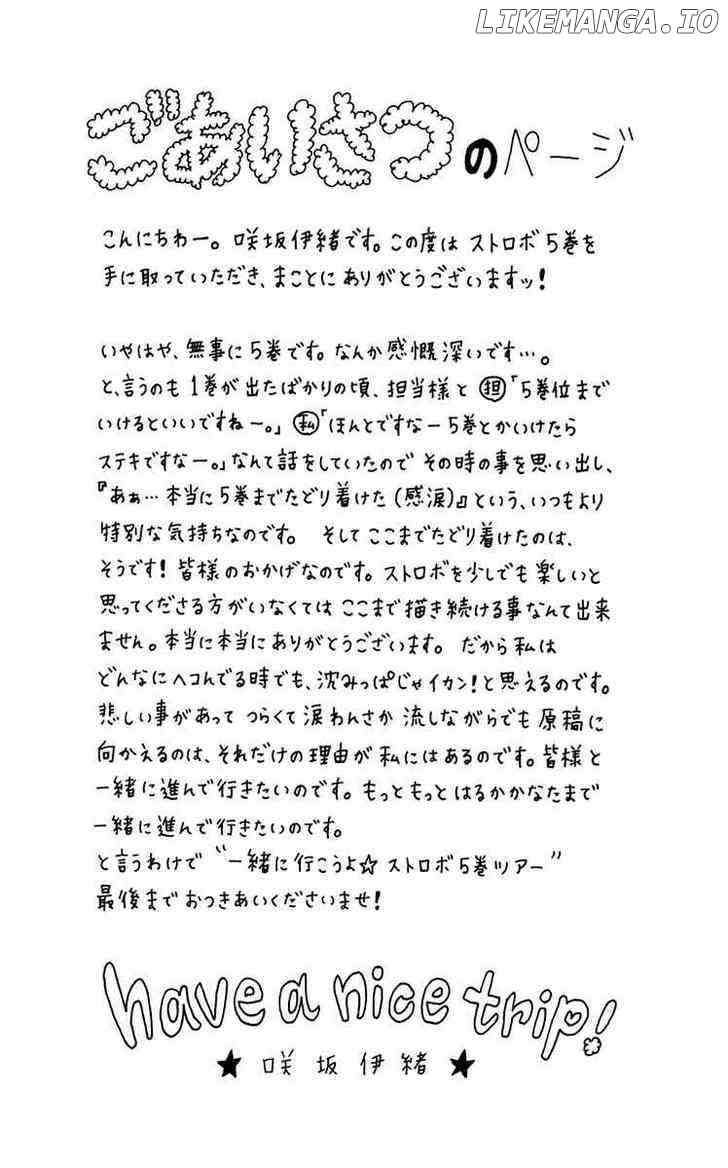 LIKEMANGA.IO
ごあいさつのページ
こんにちわー。咲坂伊緒です。この度は ストロボ5巻を
手に取っていただき、まことに ありがとうございますッ!
いやはや、無事に5巻です。なんか感慨深いです…。
と、言うのも 1巻が出たばかりの頃、担当様と 担「5巻位まで
いけるといいですねー。」 私「ほんとですなー5巻とかいけたら
ステキですなー。」なんて話をしていたので その時の事を思い出し、
『あぁ… 本当に5巻までたどり着けた(感涙)』という、いつもより
特別な気持ちなのです。 そして ここまでたどり着けたのは、
そうです! 皆様のおかげなのです。ストロボを少しでも楽しいと
思ってくださる方がいなくては ここまで描き続ける事なんて出来
ません。本当に本当にありがとうございます。 だから私は
どんなにヘコんでる時でも、沈みっぱじゃイカン! と思えるのです。
悲しい事があって つらくて涙わんさか 流しながらでも原稿に
向かえるのは、それだけの理由が私にはあるのです。皆様と
一緒に進んで行きたいのです。もっともっと はるかかなたまで
一緒に進んで行きたいのです。
と言うわけで “一緒に行こうよ☆ストロボ5巻ツアー”
最後まで おつきあいくださいませ!
have a nice trip!
★ 咲坂伊緒 ★